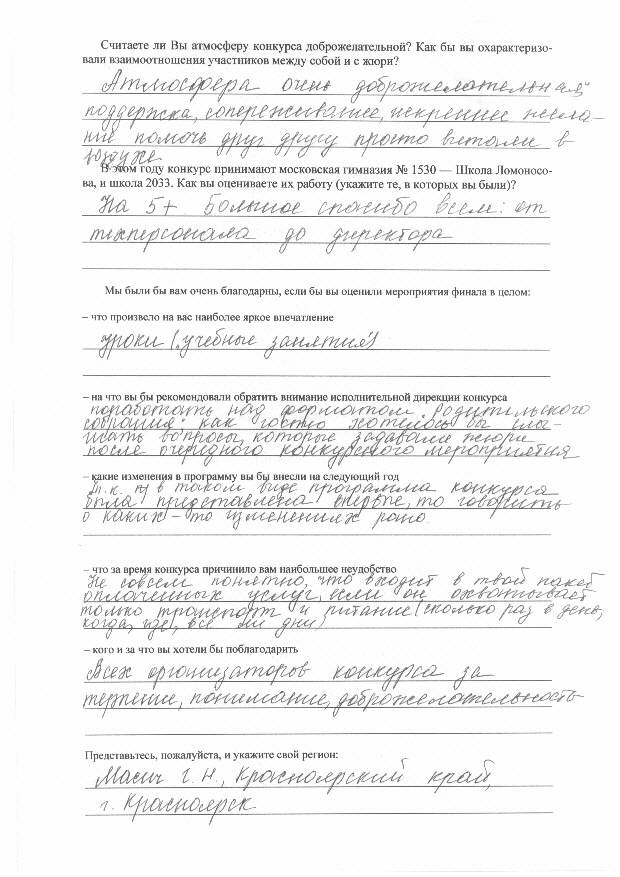 Считаете ли Вы атмосферу конкурса доброжелательной? Как бы вы охарактеризо-
вали взаимоотношения участников между собой и с жюри?
Атмосфера очень доброжелательная,
поддержка, сопереживание, искреннее жела-
ние помочь друг другу просто витали в
воздухе
В этом году конкурс принимают московская гимназия № 1530 — Школа Ломоносо-
ва, и школа 2033. Как вы оцениваете их работу (укажите те, в которых вы были)?
На 5+ Большое спасибо всем: от
техперсонала до директора
Мы были бы вам очень благодарны, если бы вы оценили мероприятия финала в целом:
– что произвело на вас наиболее яркое впечатление
уроки ("учебные занятия")
– на что вы бы рекомендовали обратить внимание исполнительной дирекции конкурса
поработать над форматом Родительского
собрания: как гостю хотелось бы слы-
шать вопросы, которые задавали жюри
после очередного конкурсного мероприятия
– какие изменения в программу вы бы внесли на следующий год
Т.к. в таком виде программа конкурса
была представлена впервые, то говорить
о каких-то изменениях рано.
– что за время конкурса причинило вам наибольшее неудобство
Не совсем понятно, что входит в твой пакет
оплаченных услуг, если он охватывает
только транспорт и питание (сколько раз в день,
когда, где), все ли дни
– кого и за что вы хотели бы поблагодарить
Всех организаторов конкурса за
терпение, понимание, доброжелательность
Представьтесь, пожалуйста, и укажите свой регион:
Масич Г.Н., Красноярский край,
г. Красноярск.